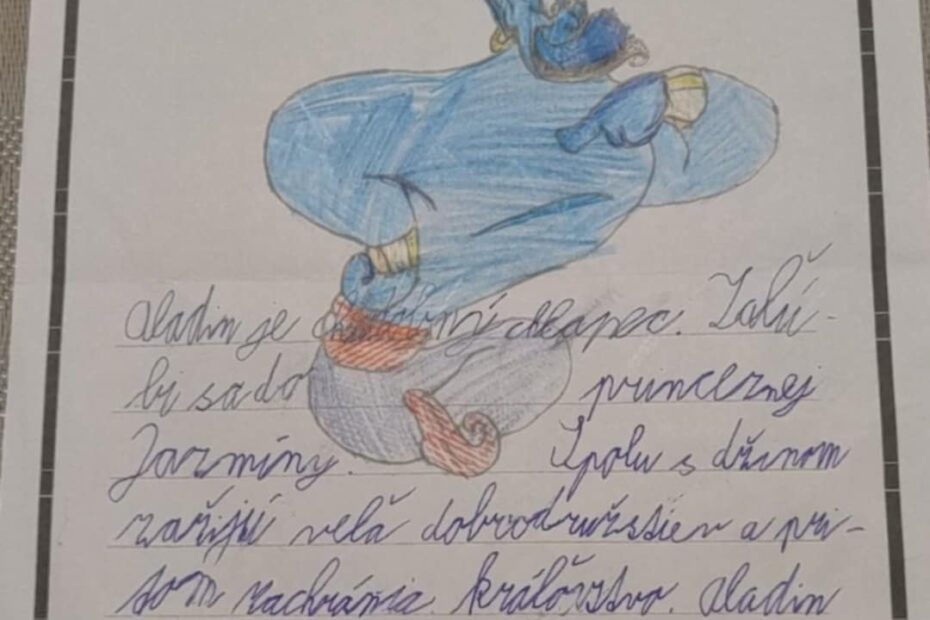 Aladin je chudobný chlapec. Zalú-
bi sa do princeznej
Jazmíny. Spolu s džinom
zažijú velă dobrodružstiev a pri-
tom zachránia královstvo. Aladin